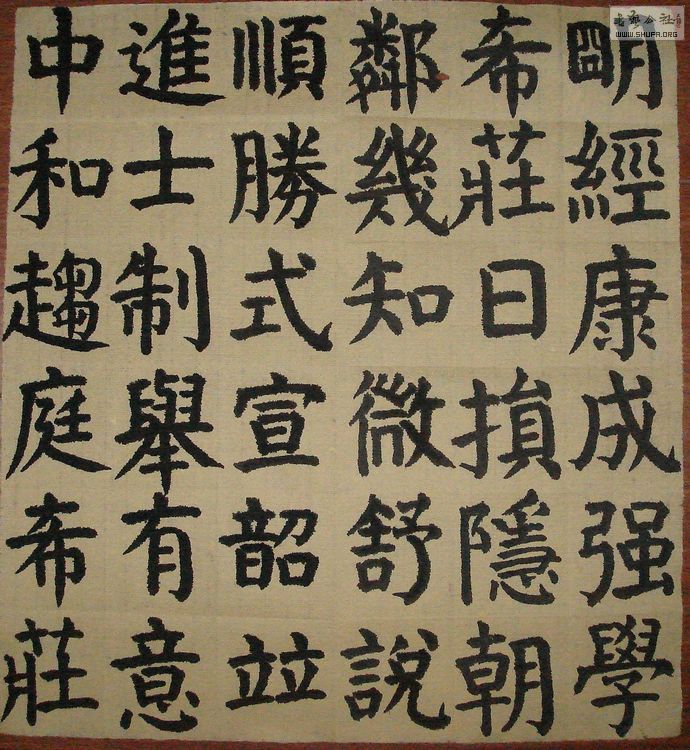 明經康成强學
希莊日損隱朝
鄰幾知微舒說
順勝式宣韶並
進士制舉有意
中和趨庭希莊
WWW.SHUFA.ORG